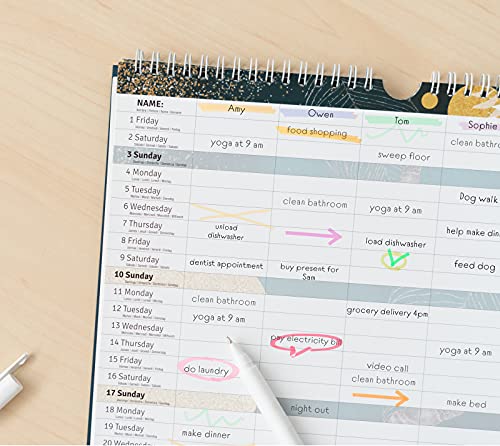 NAME: Amy Owen Tom Sophie
1 Friday food shopping clean bathroom
2 Saturday yoga at 9 am
3 Sunday sweep floor
4 Monday
5 Tuesday clean bathroom Dog walk
6 Wednesday yoga at 9 am
7 Thursday unload dishwasher load dishwasher help make din
8 Friday
9 Saturday dentist appointment buy present for Sam feed dog
10 Sunday
11 Monday clean bathroom grocery delivery 4pm
12 Tuesday yoga at 9 am
13 Wednesday pay electricity bill yoga at 9 am
14 Thursday
15 Friday do laundry video call
16 Saturday clean bathroom make bed
17 Sunday night out
18 Monday
19 Tuesday make dinner
20 Wednes